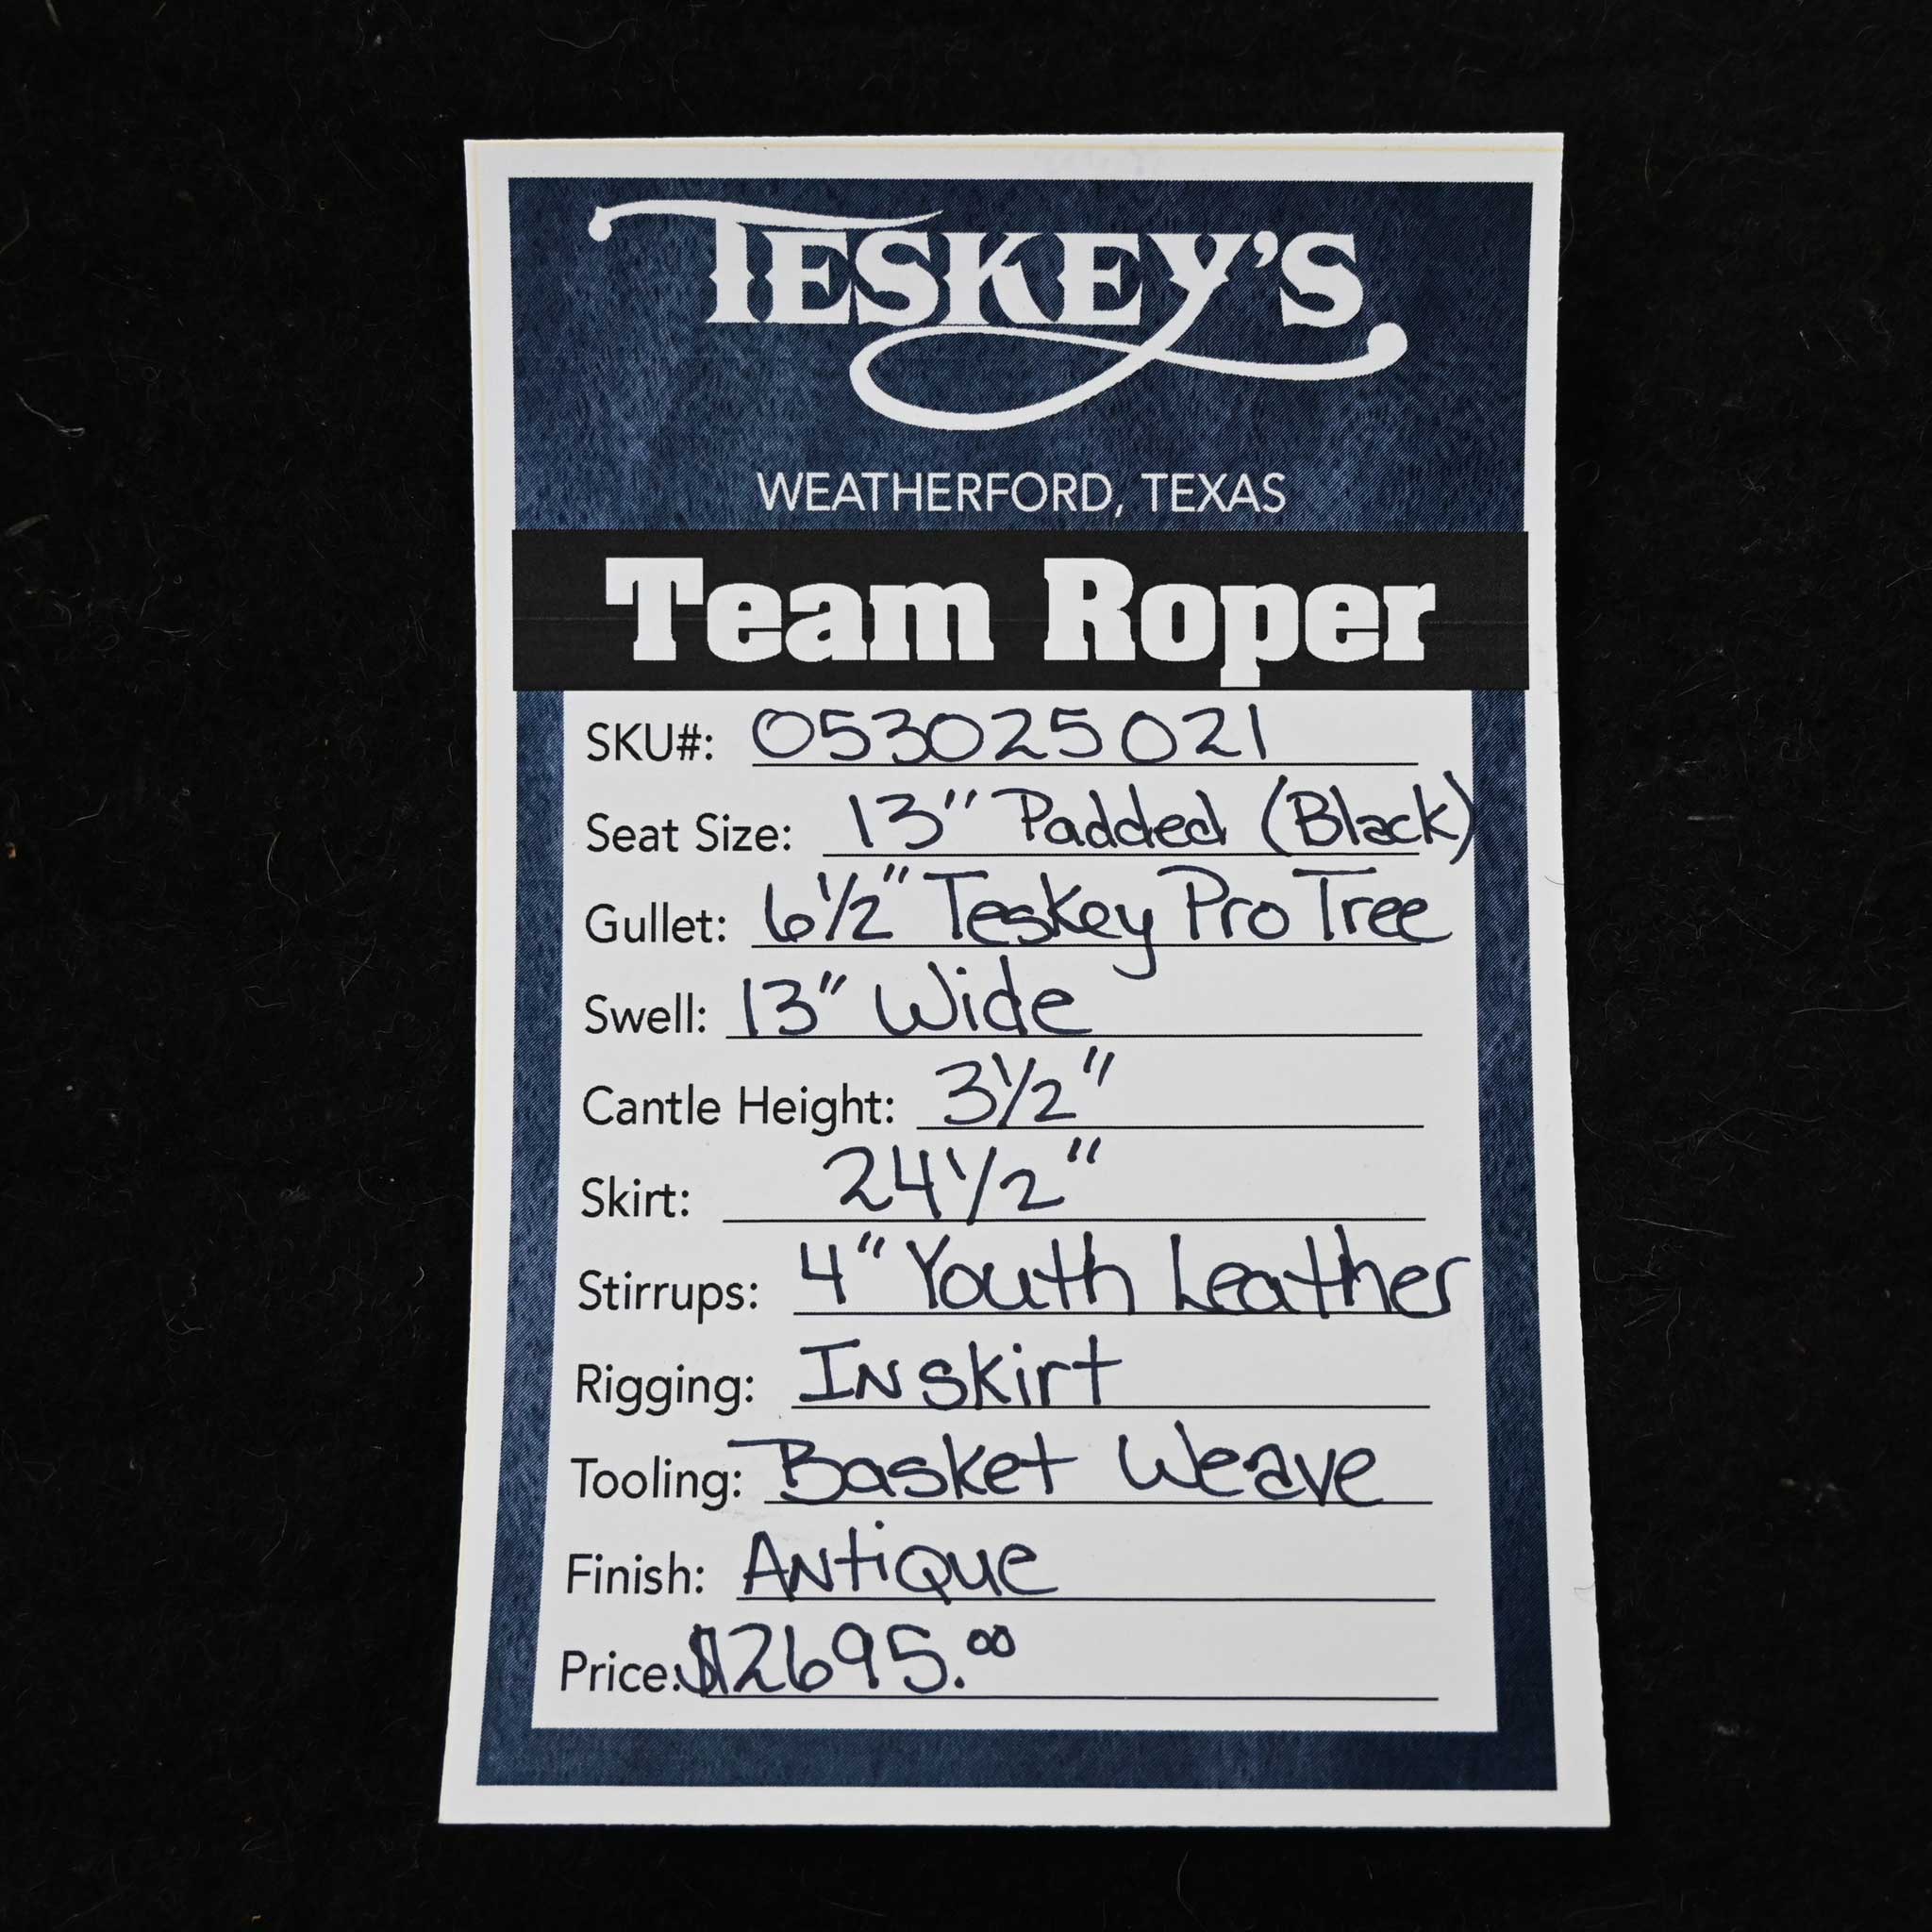 TESKEY'S
WEATHERFORD, TEXAS
Team Roper
SKU#: 053025021
Seat Size: 13" Padded (Black)
Gullet: 6½" Teskey Pro Tree
Swell: 13" Wide
Cantle Height: 3½"
Skirt: 24½"
Stirrups: 4" Youth Leather
Rigging: Inskirt
Tooling: Basket Weave
Finish: Antique
Price: $2695.00